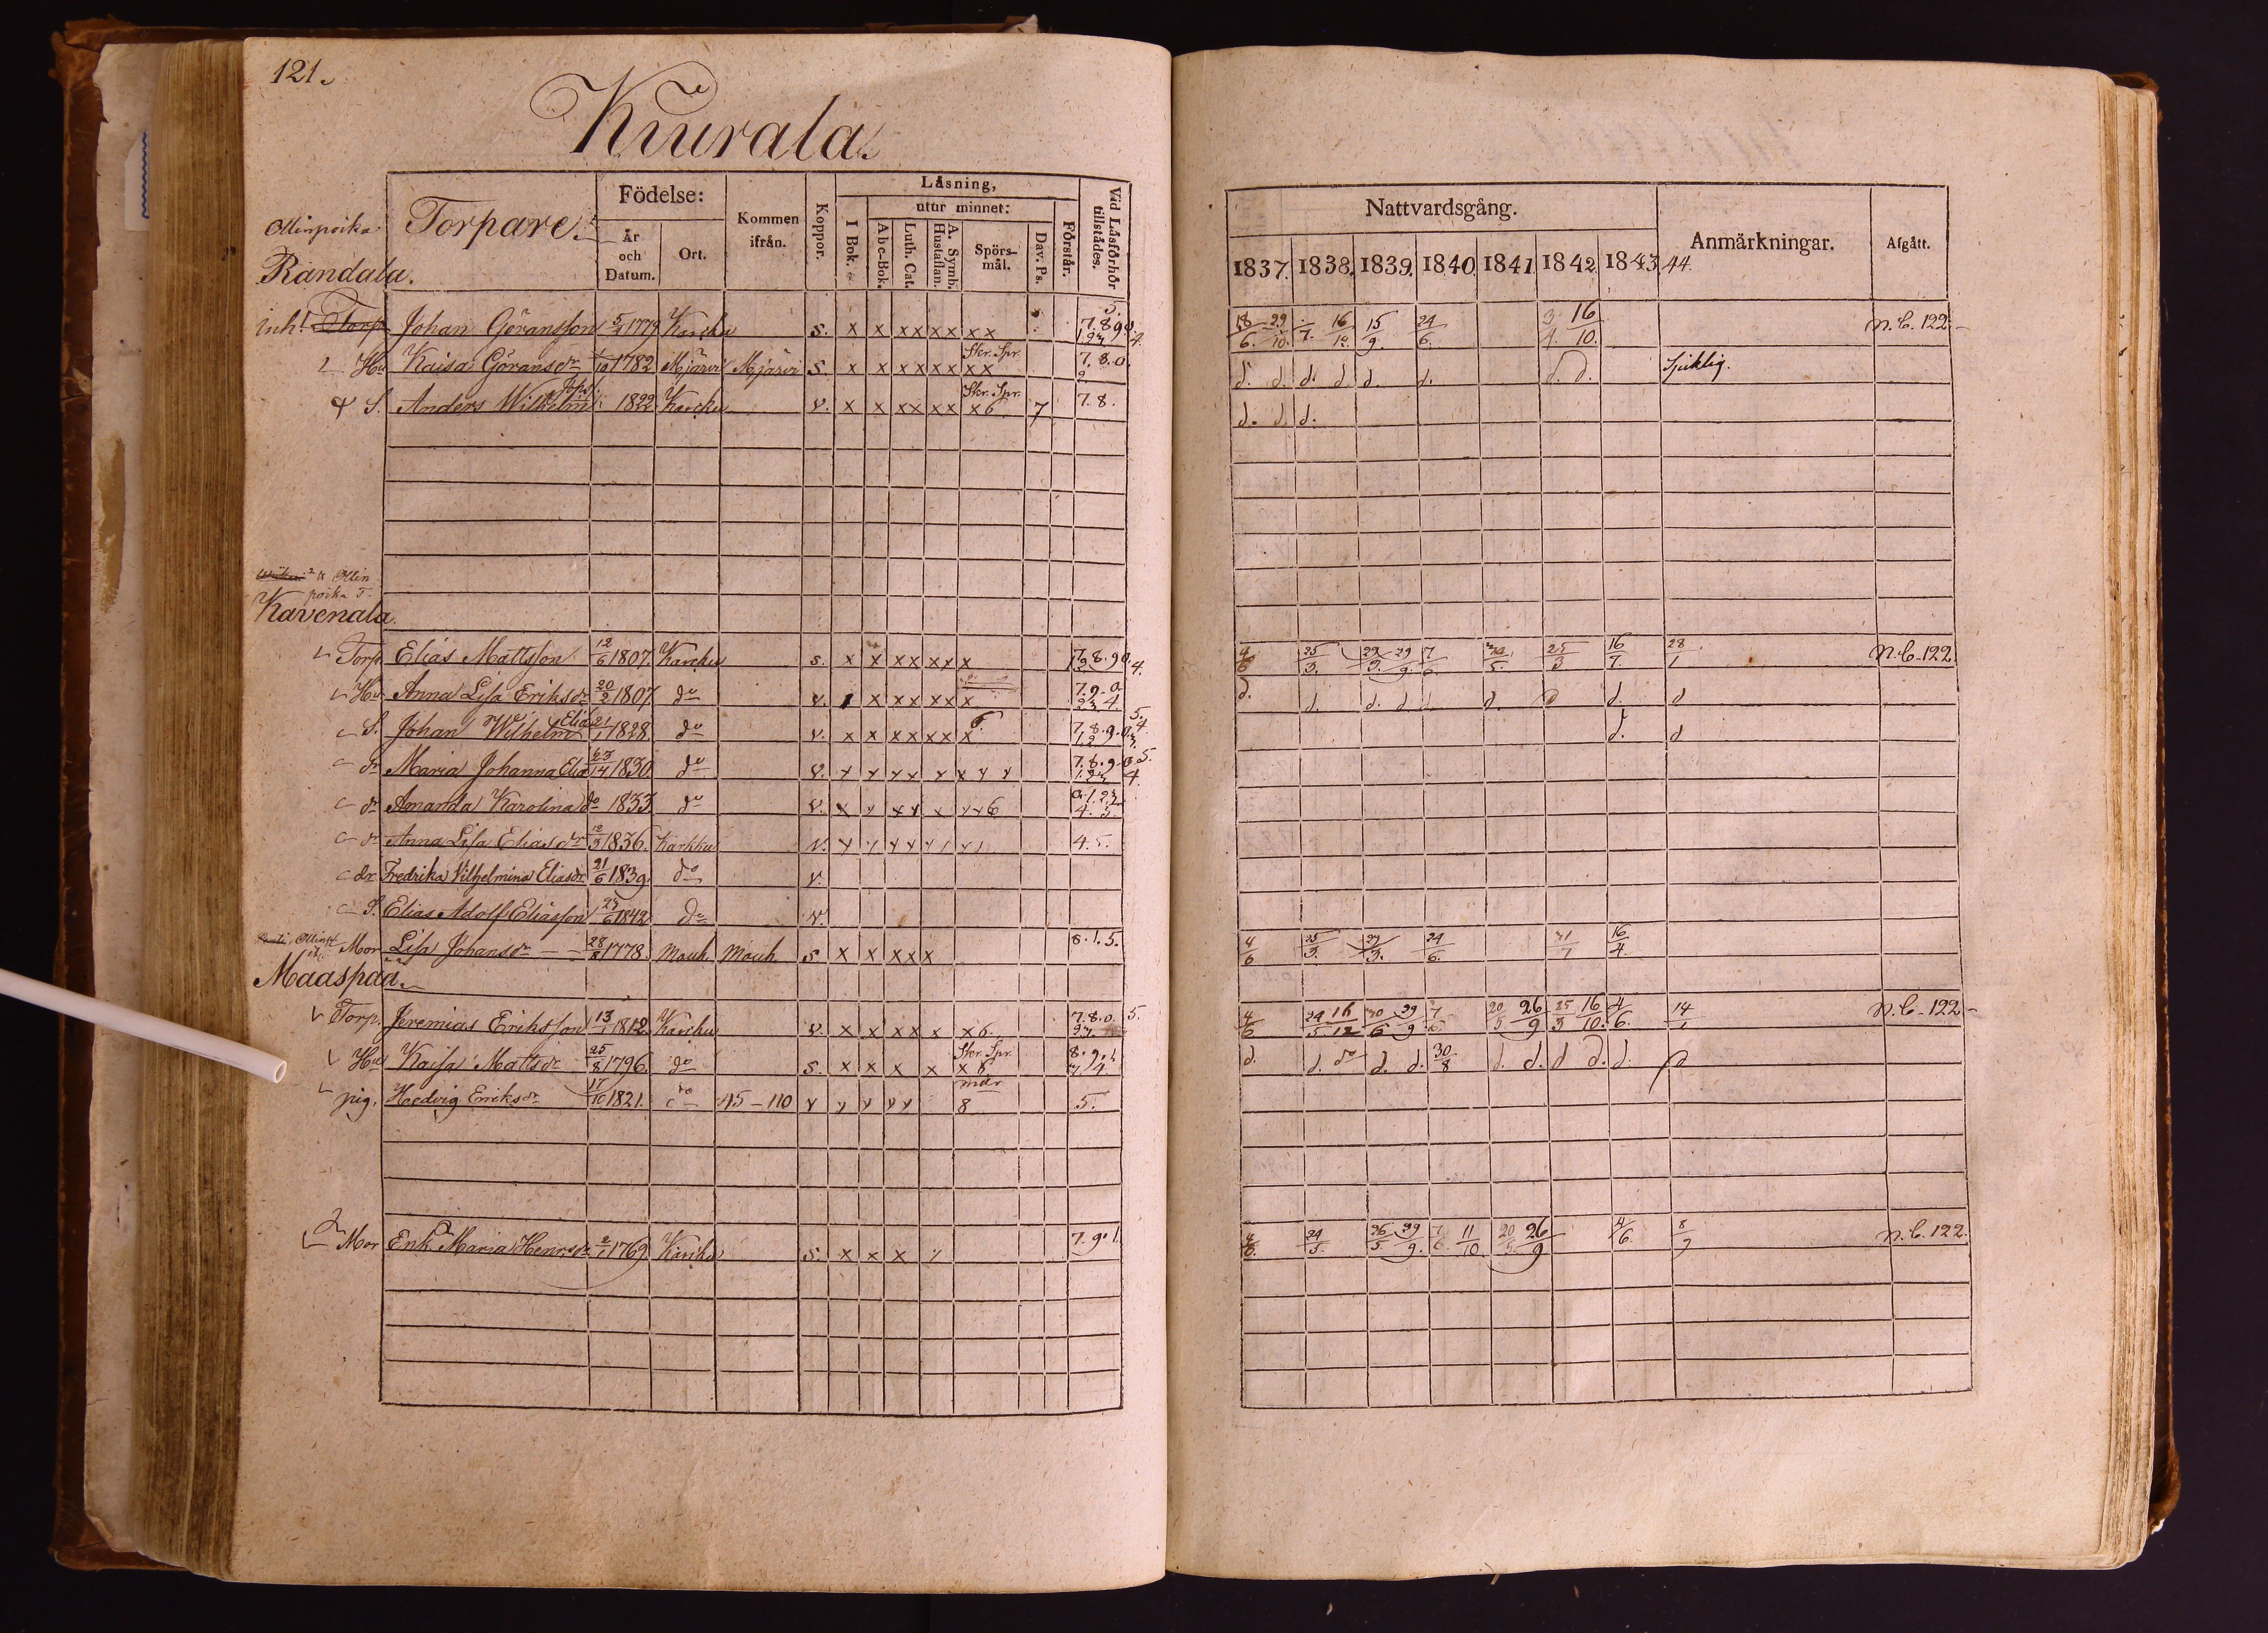 121.
Kiurala.
Ollinpoika
Randala.
Torpare.
Födelse:
År och Datum.
Ort.
Kommen ifrån.
Koppor.
Läsning,
I Bok.
utur minnet:
Abc-Bok.
Luth. Cat.
A. Symb. Hustaflan.
Spörsmål.
Dav. Ps.
Förstår.
Vid Läsförhör tillstådes.
Inh. Torp. Johan Göransson 5/4 1779 Karcku s. x x xx xx xx 7.8.9.0.
Hu Kaisa Göransdr 1782 Mjärvi Mjärvi s. x x xx xx xx Skr. Spr. 7.8.0. 2
S. Anders Wilhelm Johs. 1822 Karcku v. x x xx xx x6 Skr. Spr. 7 7.8.
Ollinpoika T.
Kavenala.
Torp. Elias Mattsson 12/6 1807 Karcku s. x x xx xx x 7.8.9.0. 4.
Hu Anna Lisa Eriksdr 20/2 1807 do v. x xx xx x 7.9.0 23 4
S. Johan Wilhelm Elias 21/1 1828 do v. x x xx xx x 7.8.9.0. 5. 4
dr Maria Johanna Elia 1830 do v. 7.8.9.0 5. 4.
dr Amanda Karolina do 1833 do v. 6 0.1.23 4.5.
dr Anna Lisa Eliasdr 12/3 1836 Karkku v. 4.5.
dr Fredrika Vilhelmina Eliasdr 21/6 1839. do v.
S. Elias Adolf Eliasson 25/6 1842 do v.
Mor Lisa Johansdr 28/8 1778 Mouh. Mouh. s x x xx x 8.1.5.
Maaspää.
Torp. Jeremias Eriksson 13/1 1812 Karcku v. x x xx x x6 7.8.0. 5.
Hu Kaisa Mattsdr 25/8 1796. do s. x x x x x6 Skr. Spr. 8.9.
pig. Hedvig Eriksdr 17/10 1821. do 45-110 8 5.
Mor Enk. Maria Henrsdr 2/1 1769 Karcku s. x x x 7.9.1.
Nattvardsgång.
Anmärkningar.
Afgått.
1837. 1838. 1839. 1840. 1841. 1842. 1843. 44.
18/6. 29/10. 16/10 15/9. 24/6. 16/10. N.B. 122.
d. d. d. d d. d. d. d. Sjuklig.
d. d. d.
4/6 25/3. 29/9. 7/6 25/3 16/7. 28/1 N.B. 122
d. d. d. d d. d d. d
d. d
4/6 25/3. 29/3. 24/6. 31/7 16/4.
4/6 24/5 16/12 30/6 29/9 7/6 20/5 26/9 25/3 16/10. 4/6. 14/1 N.B. 122
d. d. do d. d. 30/8 d. d. d d. d.
4/6 24/5 26/5 29/9. 11/10 20/5 26/9 4/6 8/9 N.B. 122.